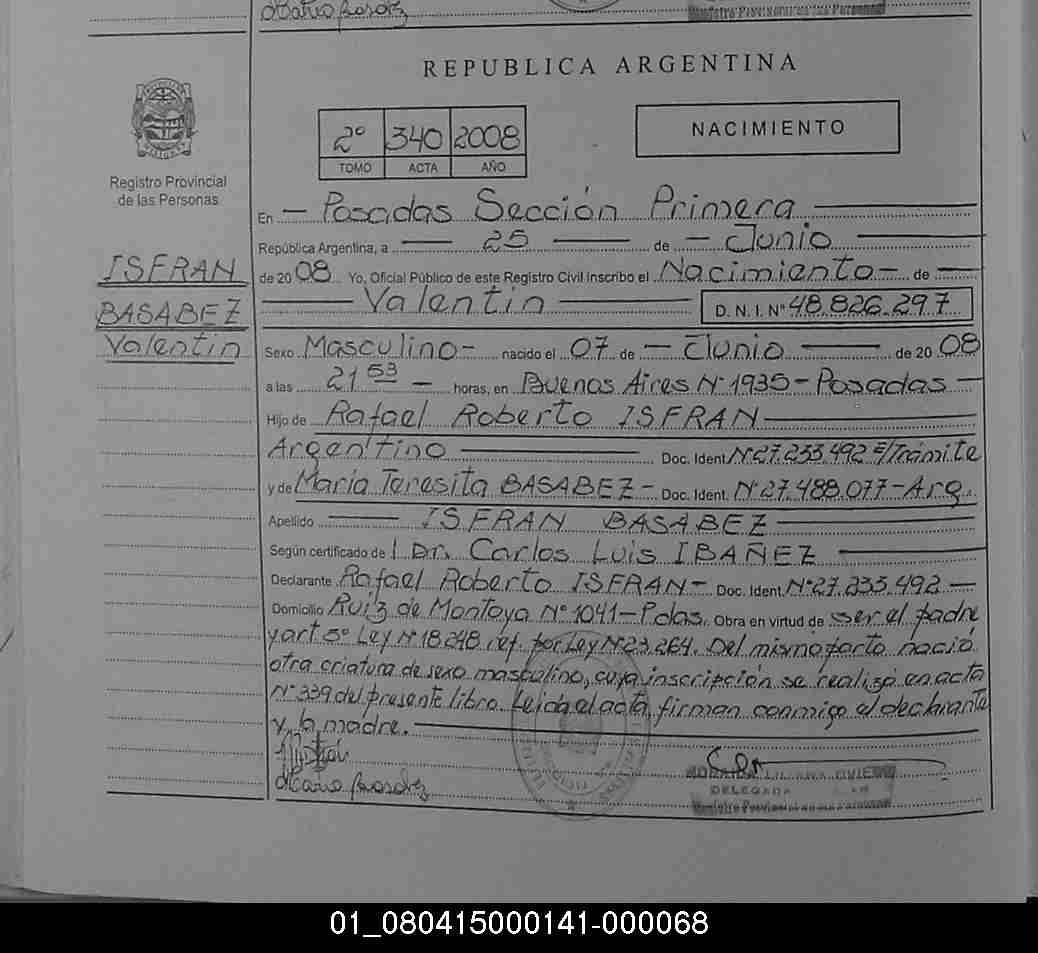 REPUBLICA ARGENTINA
2º 340 2008
TOMO ACTA AÑO
NACIMIENTO
Registro Provincial
de las Personas
ISFRAN
BASABEZ
Valentin
En Posadas Sección Primera
República Argentina, a 25 de Junio
de 2008 Yo, Oficial Público de este Registro Civil inscribo el Nacimiento de
Valentin D. N. I. Nº 48.826.297
Sexo Masculino nacido el 07 de Junio de 2008
a las 21 53 horas, en Buenos Aires Nº 1935 - Posadas
Hijo de Rafael Roberto ISFRAN
Argentino Doc. Ident. Nº 27.235.492 E/Trámite
y de María Teresita BASABEZ - Doc. Ident. Nº 27.488.077 - Arg.
Apellido ISFRAN BASABEZ
Según certificado de l Dr. Carlos Luis IBAÑEZ
Declarante Rafael Roberto ISFRAN - Doc. Ident. Nº 27.235.492
Domicilio Ruiz de Montoya Nº 1041 - Pdas. Obra en virtud de ser el padre
y art 5º Ley Nº 18.248 ref. por Ley Nº 23.264. Del mismo parto nació
otra criatura de sexo masculino, cuya inscripción se realizó en acta
Nº 339 del presente libro. Leída el acta, firman conmigo el declarante
y la madre.
DELEGADA
01_080415000141-000068